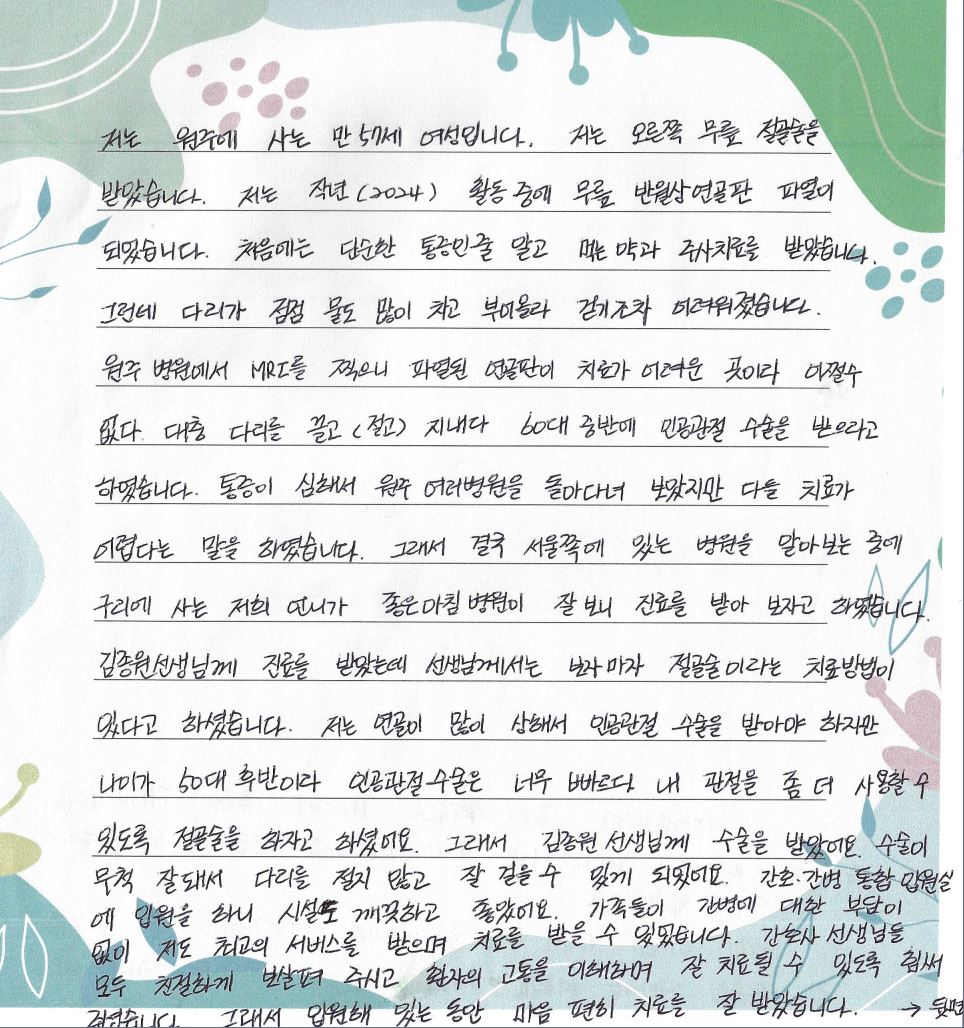 저는 원주에 사는 만 57세 여성입니다. 저는 오른쪽 무릎 절골술을
받았습니다. 저는 작년(2024) 활동 중에 무릎 반월상연골판 파열이
되었습니다. 처음에는 단순한 통증인 줄 알고 먹는 약과 주사치료를 받았습니다.
그런데 다리가 점점 물도 많이 차고 부어올라 걷기조차 어려워졌습니다.
원주 병원에서 MRI를 찍으니 파열된 연골판이 치료가 어려운 곳이라 어쩔수
없다. 대충 다리를 끌고(절고) 지내다 60대 중반에 인공관절 수술을 받으라고
하였습니다. 통증이 심해서 원주 여러병원을 돌아다녀 보았지만 다들 치료가
어렵다는 말을 하였습니다. 그래서 결국 서울쪽에 있는 병원을 알아보는 중에
구리에 사는 저희 언니가 좋은아침 병원이 잘 보니 진료를 받아 보자고 하였습니다.
김종원선생님께 진료를 받았는데 선생님께서는 보자 마자 절골술이라는 치료방법이
있다고 하셨습니다. 저는 연골이 많이 상해서 인공관절 수술을 받아야 하지만
나이가 50대 후반이라 인공관절수술은 너무 빠르다. 내 관절을 좀 더 사용할 수
있도록 절골술을 하자고 하셨어요. 그래서 김종원 선생님께 수술을 받았어요. 수술이
무척 잘돼서 다리를 절지 않고 잘 걸을 수 있게 되었어요. 간호·간병 통합 입원실
에 입원을 하니 시설도 깨끗하고 좋았어요. 가족들이 간병에 대한 부담이
없이 저도 최고의 서비스를 받으며 치료를 받을 수 있었습니다. 간호사 선생님들
모두 친절하게 보살펴 주시고 환자의 고통을 이해하며 잘 치료될 수 있도록 힘써
주셨습니다. 그래서 입원해 있는 동안 마음 편히 치료를 잘 받았습니다. → 뒷면